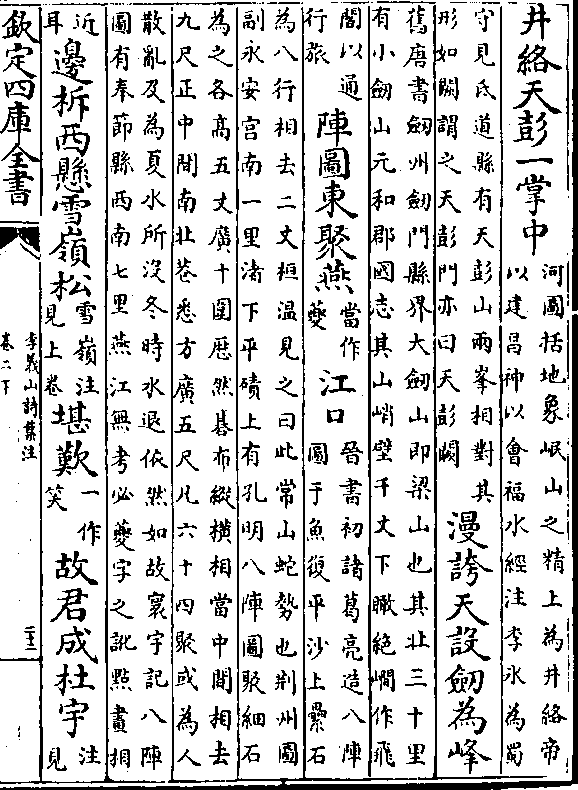 井絡天彭一掌中
河圖括地象岷山之精上為井絡帝
以建昌神以會福水經注李氷為蜀
守見氐道縣有天彭山兩峯相對其
形如闕謂之天彭門亦曰天彭闕
漫誇天設劒為峰
舊唐書劒州劒門縣界大劒山即梁山也其北三十里
有小劒山元和郡國志其山峭壁千丈下瞰絶㵎作飛
閣以通
行旅
陣圖東聚燕
當作
夔
江口
晉書初諸葛亮造八陣
圖于魚復平沙上纍石
為八行相去二丈桓温見之曰此常山蛇勢也荆州圖
副永安宫南一里渚下平磧上有孔明八陣圖聚細石
為之各髙五丈廣十圍厯然碁布縱横相當中間相去
九尺正中間南北巷悉方廣五尺凡六十四聚或為人
散亂及為夏水所没冬時水退依然如故寰宇記八陣
圖有奉節縣西南七里燕江無考必夔字之訛㸃畫相
近
耳
邊柝西懸雪嶺松
雪嶺注
見上卷
堪歎
一作
笑
故君成杜宇
注
見
欽定四庫全書
李義山詩集注
卷二下
二十三